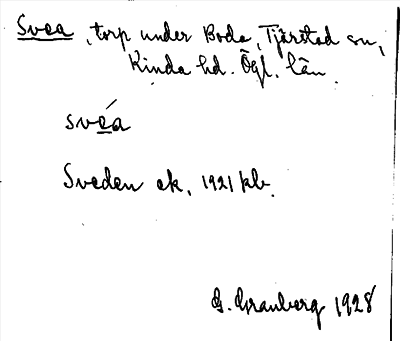 Svea, torp under Boda, Tjärstad sn,
Kinda hd. Ögl. län.
svéa
Sveden ek. 1921 kb.
G. Granberg 1928